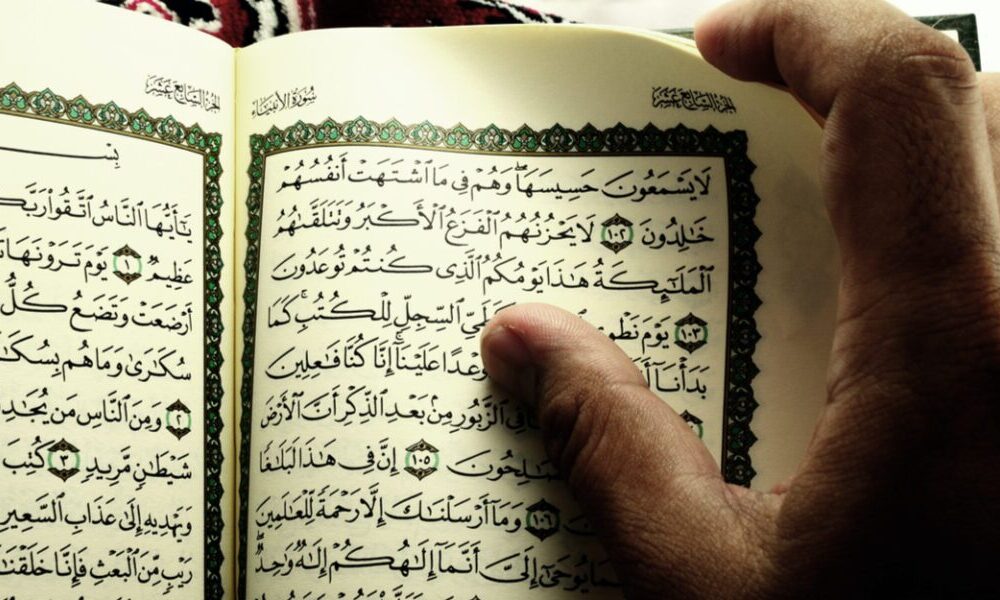 الجزء السابع عشر سورة الأنبياء
لَا يَسْمَعُونَ حَسِيسَهَا ۖ وَهُمْ فِي مَا ٱشْتَهَتْ أَنفُسُهُمْ
خَٰلِدُونَ ١٠٢ لَا يَحْزُنُهُمُ ٱلْفَزَعُ ٱلْأَكْبَرُ وَتَتَلَقَّىٰهُمُ
ٱلْمَلَٰٓئِكَةُ هَٰذَا يَوْمُكُمُ ٱلَّذِي كُنتُمْ تُوعَدُونَ
١٠٣ يَوْمَ ٱلسِّجِلِّ لِلْكُتُبِ ۚ كَمَا
بَدَأْنَآ وَعْدًا عَلَيْنَآ ۚ إِنَّا كُنَّا فَٰعِلِينَ
فِي ٱلزَّبُورِ مِنۢ بَعْدِ ٱلذِّكْرِ أَنَّ ٱلْأَرْضَ
١٠٥ إِنَّ فِي هَٰذَا لَبَلَٰغًا
١٠٦ وَمَآ أَرْسَلْنَٰكَ إِلَّا رَحْمَةً لِّلْعَٰلَمِينَ
يُوحَىٰٓ إِلَيَّ أَنَّمَآ إِلَٰهُكُمْ إِلَٰهٌ وَٰحِدٌ ۖ
الجزء السابع عشر
يَٰٓأَيُّهَا ٱلنَّاسُ ٱتَّقُوا۟
عَظِيمٌ ١ يَوْمَ تَرَوْنَهَا
أَرْضَعَتْ وَتَضَعُ كُلُّ
سُكَٰرَىٰ وَمَا هُم
٢ وَمِنَ ٱلنَّاسِ مَن
شَيْطَٰنٍ مَّرِيدٍ ٣ كُتِبَ
وَيَهْدِيهِ إِلَىٰ عَذَابِ ٱلسَّعِيرِ
رَيْبٍ مِّنَ ٱلْبَعْثِ فَإِنَّا